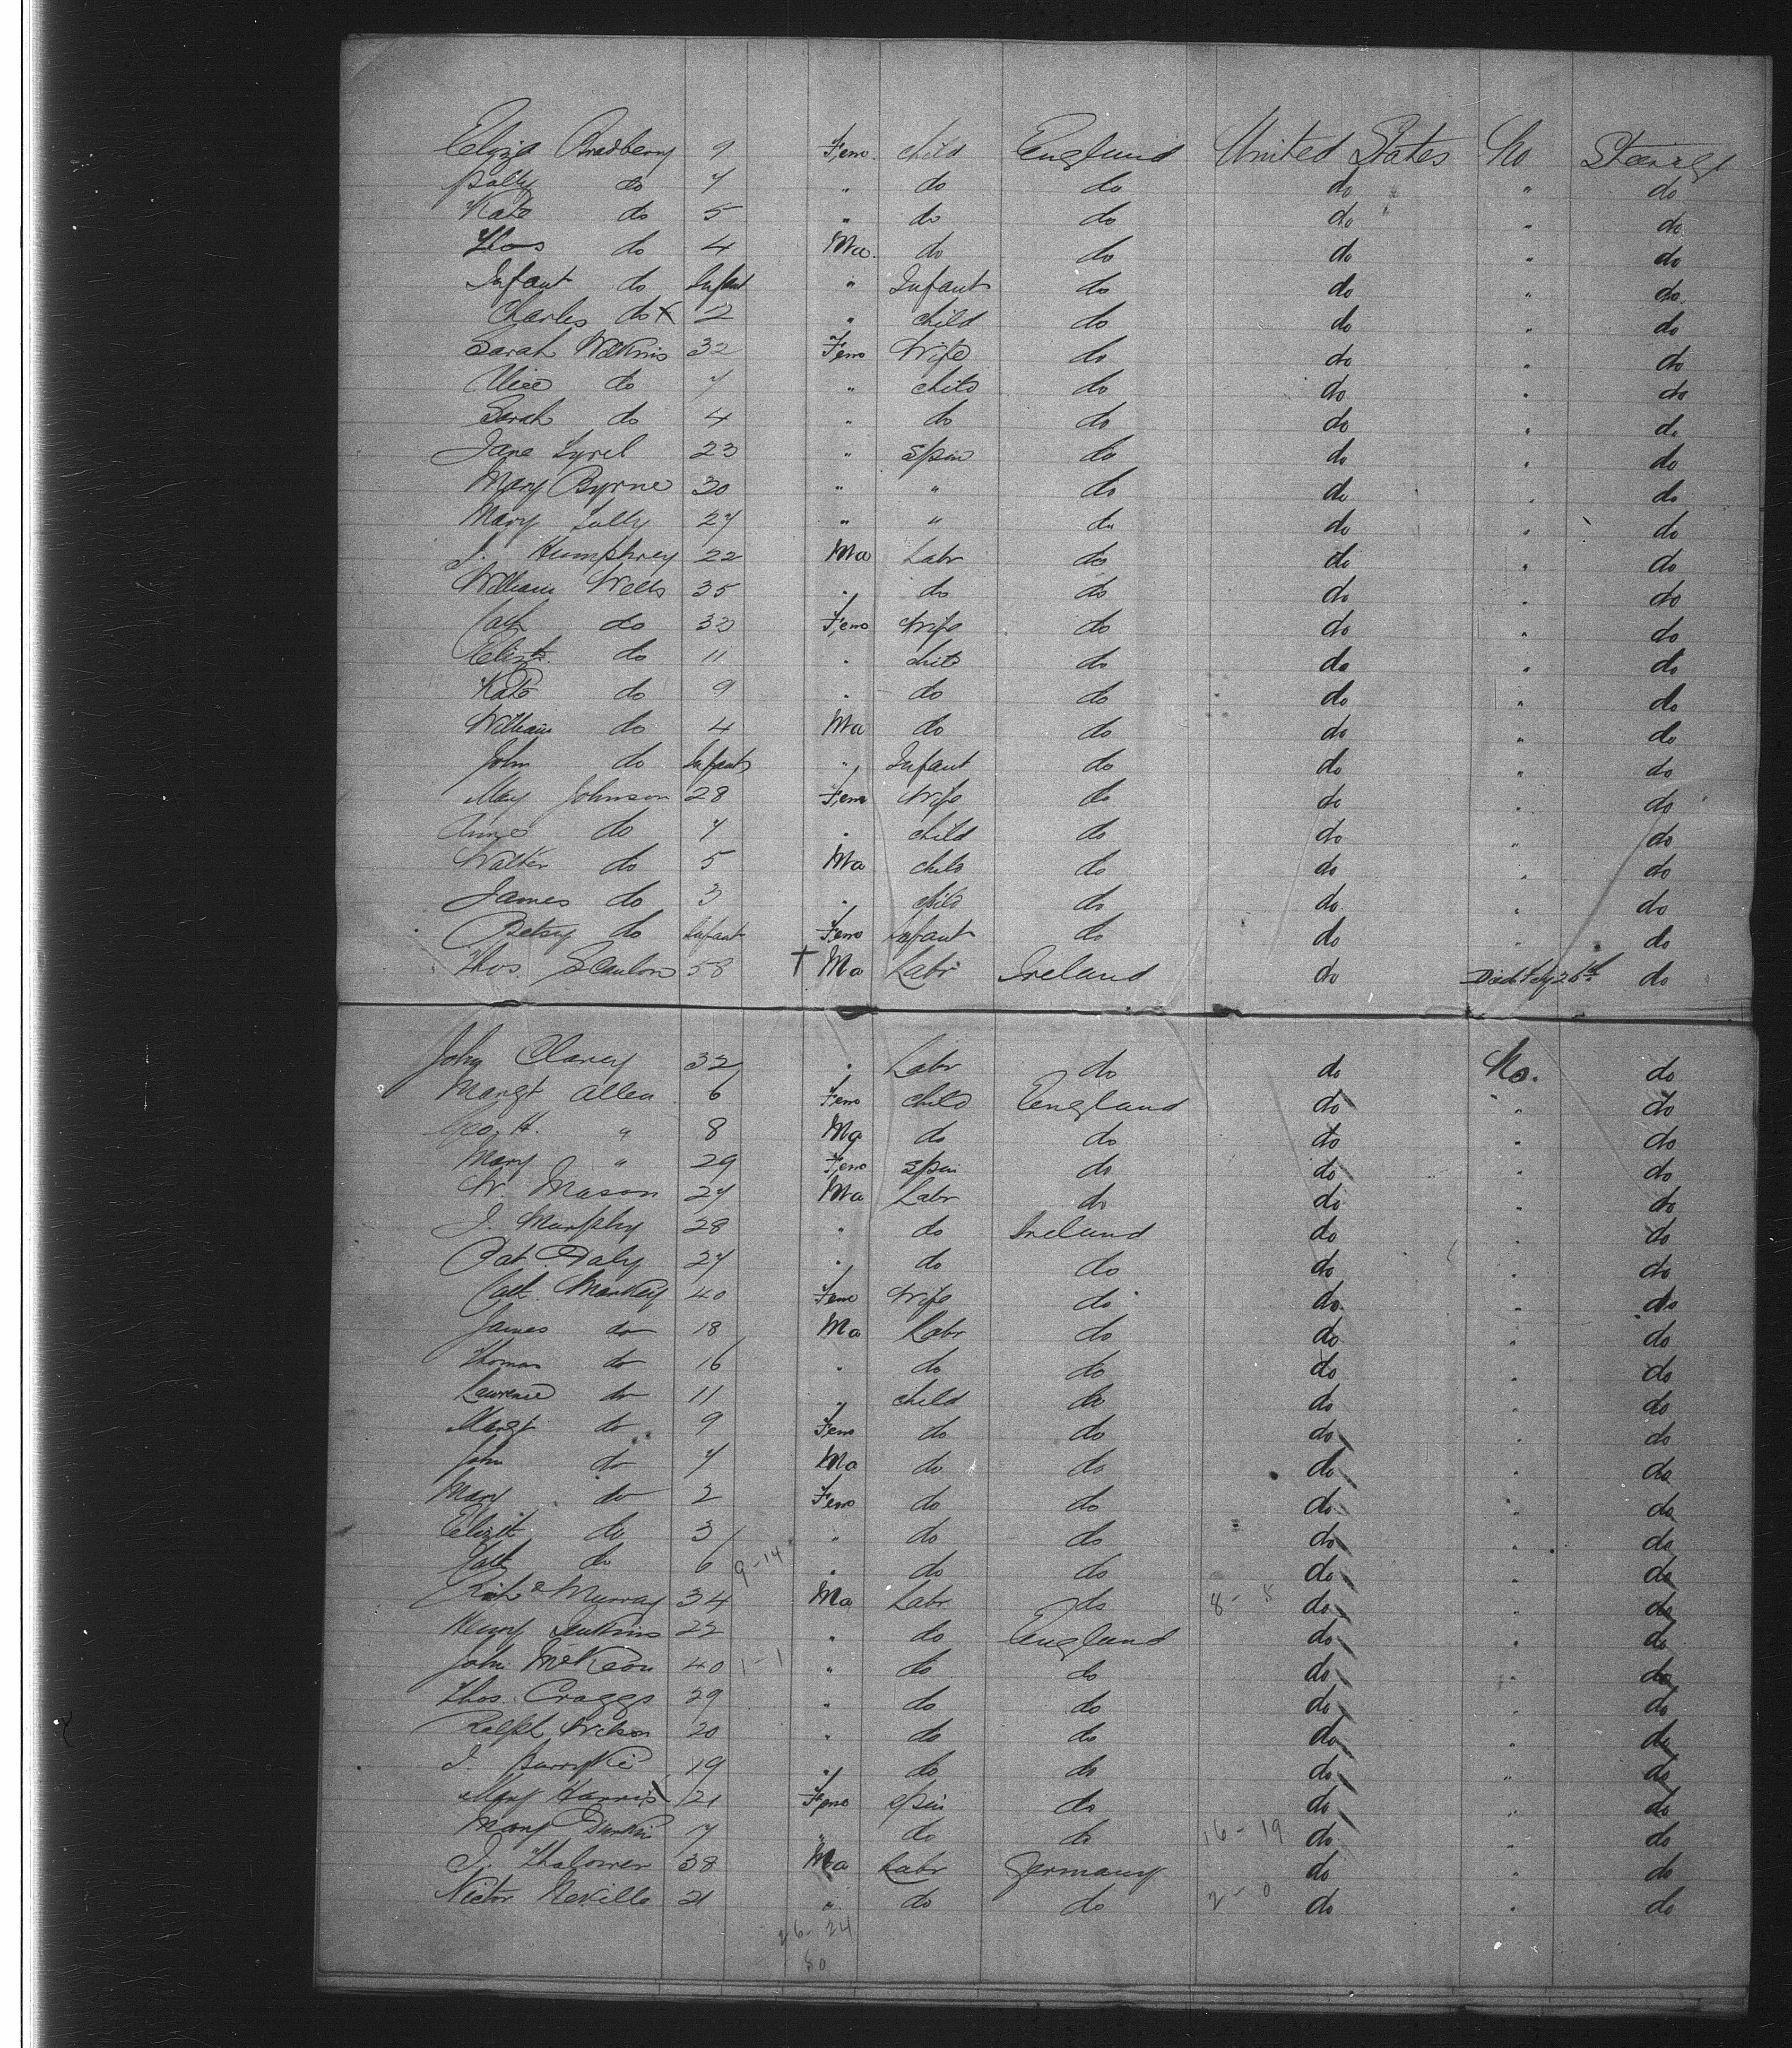 Eliza Bradberry 9 Fem. child England United States No Steerage
Polly do 7 " do do do " do
Kate do 5 " do do do " do
Thos do 4 Ma. do do do " do
Infant do Infant " Infant do do " do
Charles do x 2 " child do do " do
Sarah Watkins 32 Fem Wife do do " do
Alice do 7 " child do do " do
Sarah do 4 " do do do " do
Jane 23 " Spin do do " do
Mary Byrne 30 " " do do " do
Mary 27 " " do do " do
J. Humphrey 22 Ma Labr do do " do
William Wells 35 " do do do " do
Cath do 33 Fem Wife do do " do
Elizth. do 11 " child do do " do
Kate do 9 " do do do " do
William do 4 Ma do do do " do
John do Infant " Infant do do " do
May Johnson 28 Fem Wife do do " do
Annie do 7 " child do do " do
Walter do 5 Ma child do do " do
James do 3 " child do do " do
Betsy do Infant Fem Infant do do " do
Thos. Scanlon 58 † Ma Labr Ireland do Died 26th do
John Clancy 32 " Labr do do No. do
Margt Allen 6 Fem child England do " do
Geo. H. " 8 Ma do do do " do
Mary " 29 Fem Spin do do " do
W. Mason 27 Ma Labr do do " do
J. Murphy 28 " do Ireland do " do
Pat Daly 27 " do do do " do
Cath. Markey 40 Fem Wife do do " do
James do 18 Ma Labr do do " do
Thomas do 16 " do do do " do
Lawrence do 11 " child do do " do
Margt do 9 Fem do do do " do
John do 7 Ma do do do " do
Mary do 2 Fem do do do " do
Elizth do 3 " do do do " do
Cath do 6 9-14 " do do do " do
Richd Murray 34 Ma Labr do 8- do " do
Henry Jenkins 22 " do England do " do
John McKeon 40 1-1 " do do do " do
Thos. Craggs 29 " do do do " do
Ralph Wilson 20 " do do do " do
J. 19 " do do do " do
Mary Harris x 21 Fem spin do do " do
Mary Durkin 7 " do do 16-19 do " do
J. 38 Ma Labr Germany do " do
Victor Neville 21 " do do 2-0 do " do
26-24
50